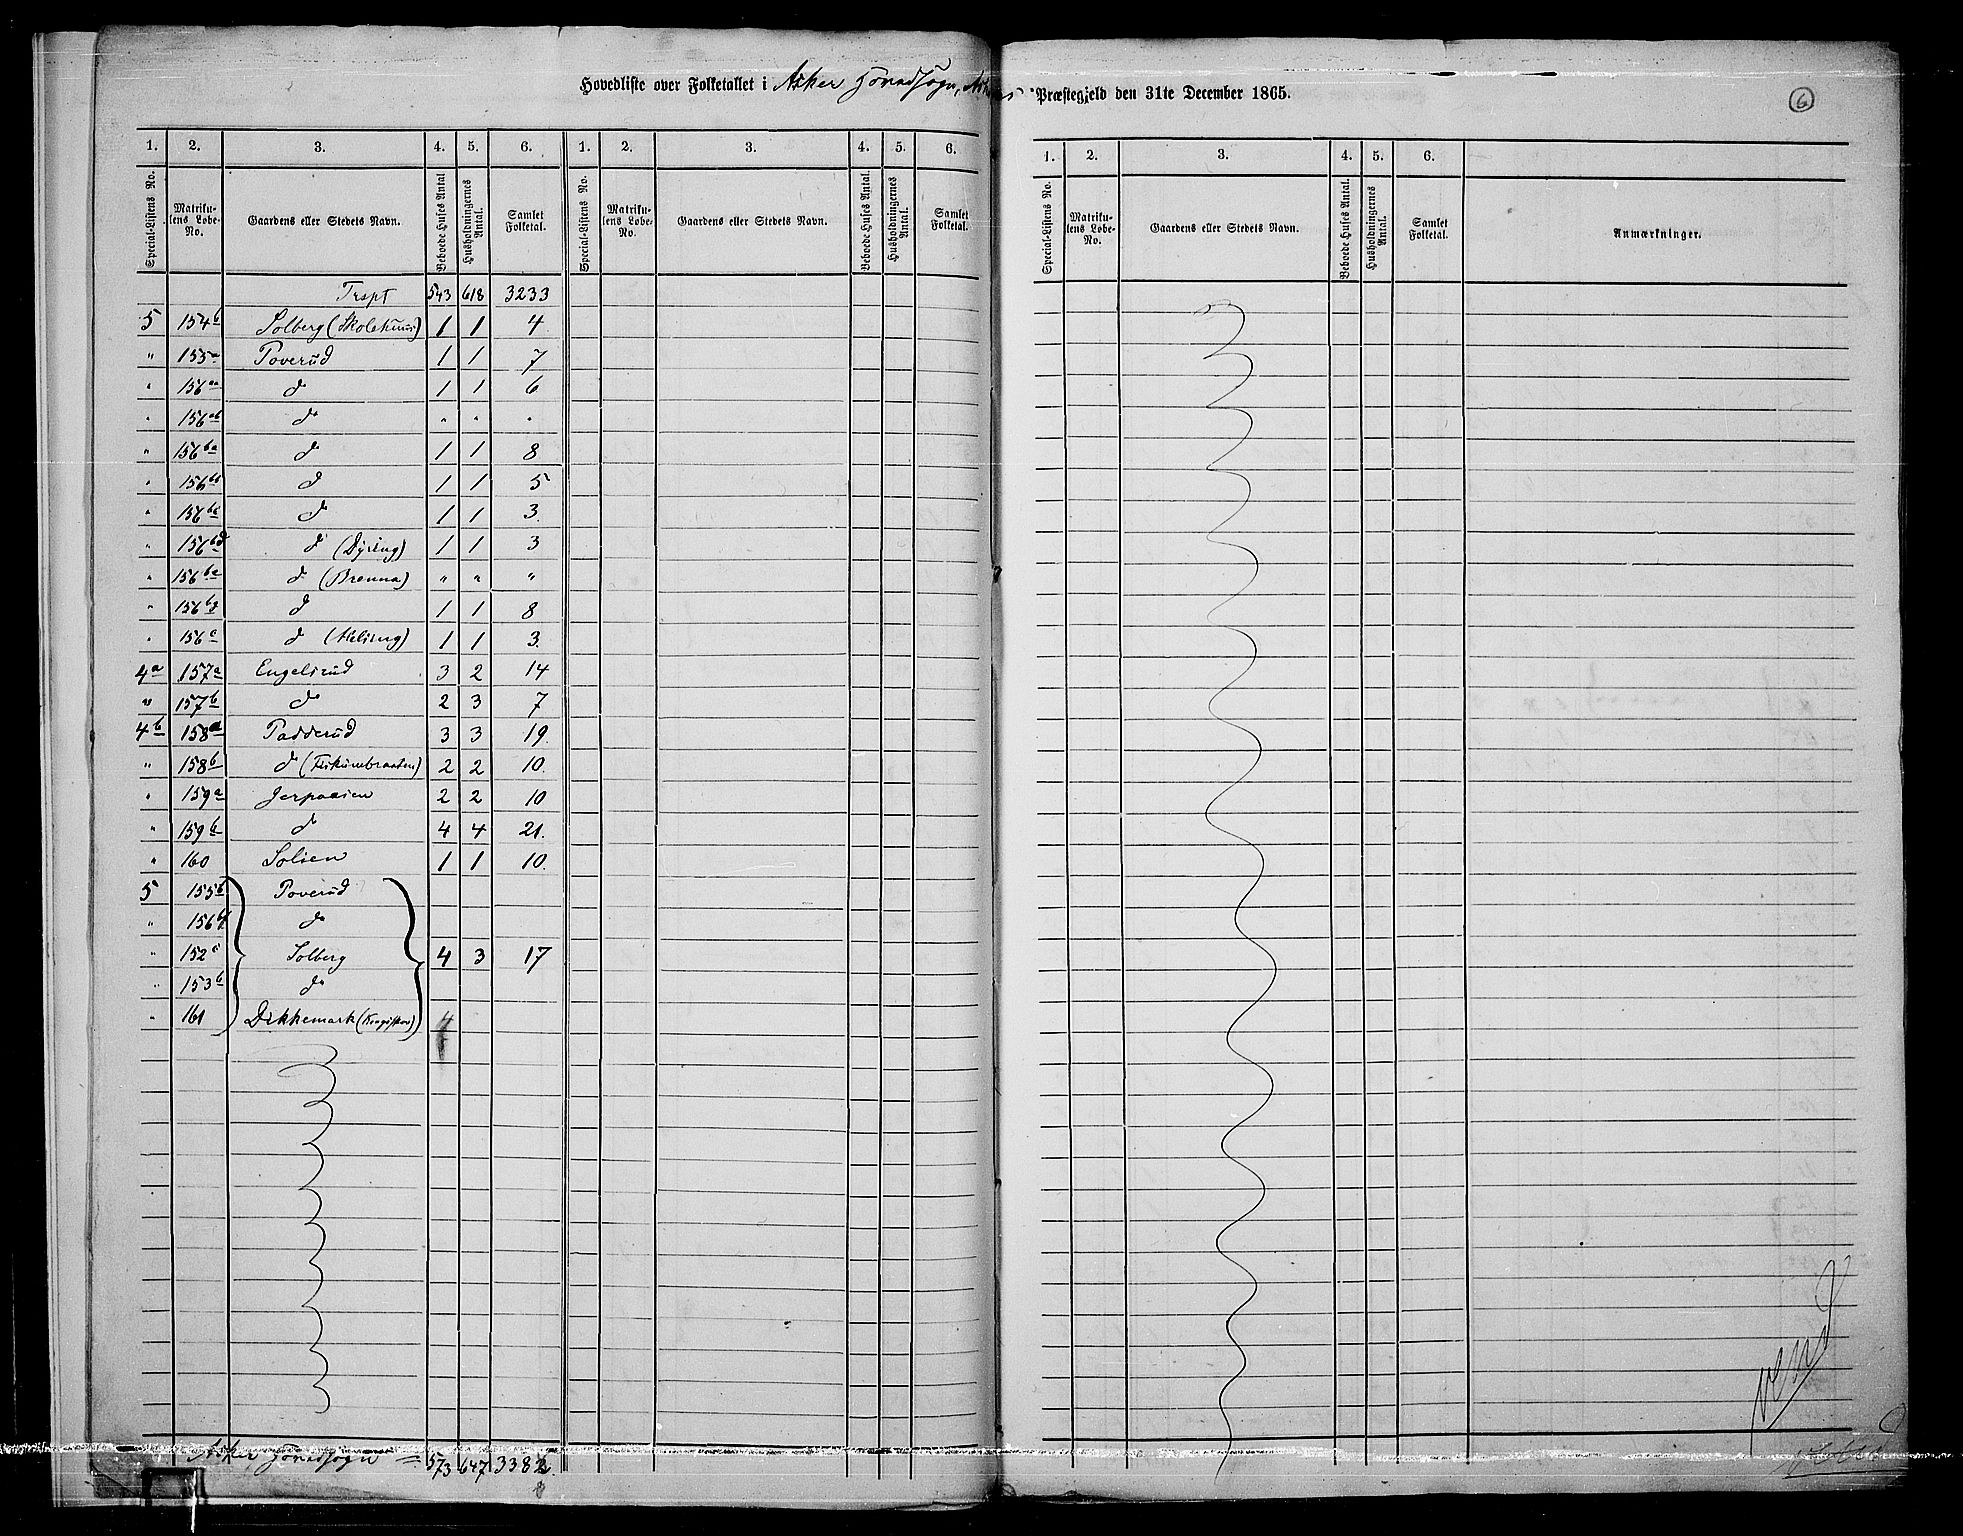 Hovedliste over Folketallet i Asker Hovedsogn, Askers Præstegjeld den 31te December 1865.
6
1. 2. 3. 4. 5. 6. 1. 2. 3. 4. 5. 6. 1. 2. 3. 4. 5. 6.
Special-Listens No. Matrikulens Løbe-No. Gaardens eller Stedets Navn. Beboede Huses Antal Husholdningernes Antal. Samlet Folketal. Special-Listens No. Matrikulens Løbe-No. Gaardens eller Stedets Navn. Beboede Huses Antal. Husholdningernes Antal. Samlet Folketal. Special-Listens No. Matrikulens Løbe-No. Gaardens eller Stedets Navn. Beboede Huses Antal. Husholdningernes Antal. Samlet Folketal. Anmærkninger.
Trspt 543 618 3233
5 154b Solberg (Skolehuus) 1 1 4
" 155a Poverud 1 1 7
" 156aa do 1 1 6
" 156ab do " " "
" 156ba do 1 1 8
" 156bb do 1 1 5
" 156bc do 1 1 3.
" 156bd do (Dyring) 1 1 3
" 156be do (Brenna) " " "
" 156bg do 1 1 8
" 156c do 1 1 3.
4a 157a Engelsrud 3 2 14
" 157b do 2 3 7
4b 158a Padderud 3 3 19.
" 158b do 2 2 10.
" 159a Jerpaasen 2 2 10
" 159b do 4 4 21.
" 160 Solien 1 1 10.
5 155b Poverud
" 156bf do
" 152c Solberg 4 3 17
" 153b do
" 161 Dikkemark
Asker Hovedsogn = 573 647 3382.